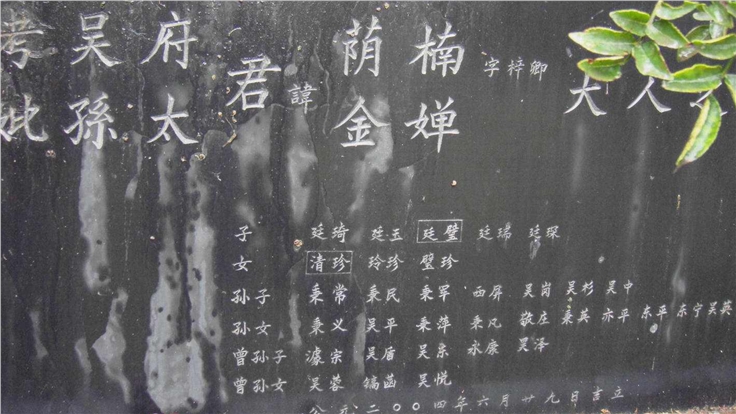 考吴府君諱荫楠字梓卿大人
妣吴孫太君諱金婵大人
子 廷琦 廷玉 廷璧 廷瑞 廷琛
女 清珍 玲珍 璧珍
孙子 秉常 秉民 秉军 西屏 吴岗 吴杉 吴中
孙女 秉义 吴平 秉萍 秉凡 敬庄 秉英 亦平 东平 东宁 吴英
曾孙子 濾宗 吴盾 吴东 永康 吴泽
曾孙女 吴蓉 镐菡 吴悦
公元二〇〇四年六月廿九日吉立